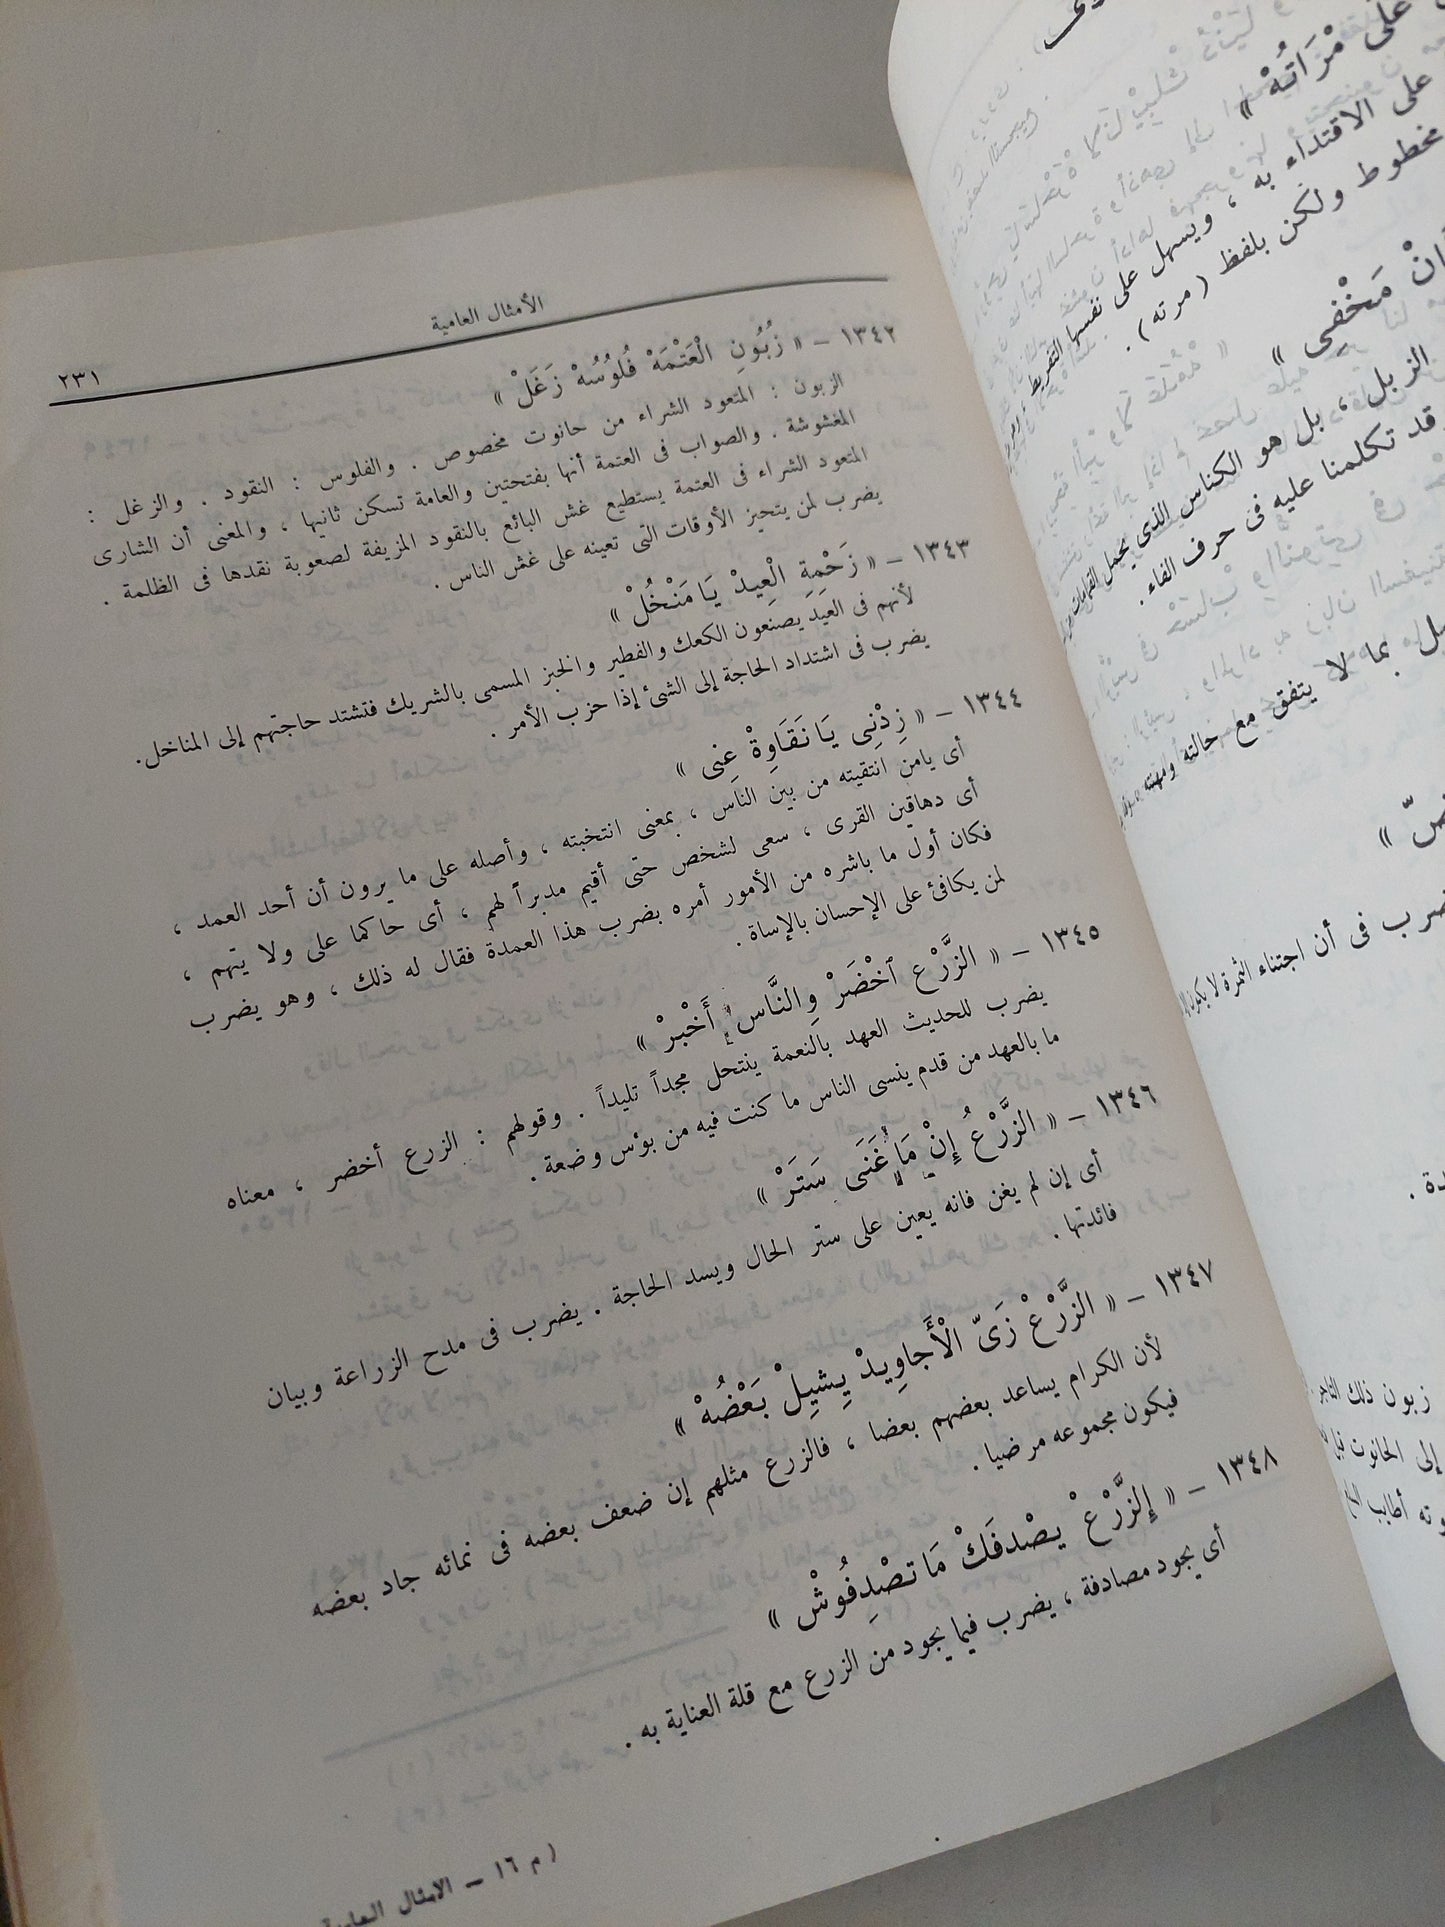 الأمثال العامية
٢٣١
١٣٤٢ – « زُبُونِ الْعَتْمَهْ فُلُوسُهْ زَغَلْ »
الزبون : المتعود الشراء من حانوت مخصوص . والفلوس : النقود . والزغل :
المغشوشة . والصواب فى العتمة أنها بفتحتين والعامة تسكن ثانيها ، والمعنى أن الشارى
المتعود الشراء فى العتمة يستطيع غش البائع بالنقود المزيفة لصعوبة نقدها فى الظلمة .
يضرب لمن يتحيز الأوقات التى تعينه على غش الناس .
١٣٤٣ – « زَحْمِةِ الْعِيدْ يَا مَنْخُلْ »
لأنهم فى العيد يصنعون الكعك والفطير والخبز المسمى بالشريك فتشتد حاجتهم إلى المناخل.
يضرب فى اشتداد الحاجة إلى الشئ إذا حزب الأمر .
١٣٤٤ – « زِدْنِى يَا نَقَاوِةْ عِنِى »
أى يامن انتقيته من بين الناس ، بمعنى انتخبته ، وأصله على ما يرون أن أحد العمد ،
أى دهاقين القرى ، سعى لشخص حتى أقيم مدبراً لهم ، أى حاكما على ولا يتهم ،
فكان أول ما باشره من الأمور أمره بضرب هذا العمدة فقال له ذلك ، وهو يضرب
لمن يكافئ على الإحسان بالإساة .
١٣٤٥ – « الزَّرْع اَخْضَرْ وِالنَّاس إِ أَخْبرْ »
يضرب للحديث العهد بالنعمة ينتحل مجداً تليداً . وقولهم : الزرع أخضر ، معناه
ما بالعهد من قدم ينسى الناس ما كنت فيه من بؤس وضعة .
١٣٤٦ – « الزَّرْعُ إِنْ مَا غَنَى سَتَرْ »
أى إن لم يغن فانه يعين على ستر الحال ويسد الحاجة . يضرب فى مدح الزراعة وبيان
فائدتها .
١٣٤٧ – « الزَّرْعْ زَىّ الْأَجَاوِيدْ يِشِيلْ بَعْضُهْ »
لأن الكرام يساعد بعضهم بعضا ، فالزرع مثلهم إن ضعف بعضه فى نمائه جاد بعضه
فيكون مجموعه مرضيا .
١٣٤٨ – « إِلزَّرْعْ يصْدفَكْ مَا تصْدِفُوشْ »
أى يجود مصادفة ، يضرب فيما يجود من الزرع مع قلة العناية به .
( م ١٦ – الامثال العامية
على مْرَاتُهْ »
على الاقتداء به ، ويسهل على نفسها التفريط
مخطوط ولكن بلفظ ( مرته ) .
مَخْفِى »
الزبل ، بل هو الكناس الذى يحمل القمامات
وقد تكلمنا عليه فى حرف الفاء .
بما لا يتفق مع حالته ومهنته
يضرب فى أن اجتناء الثمرة لا يكون
زبون ذلك التاجر
إلى الحانوت قبل
أطايب